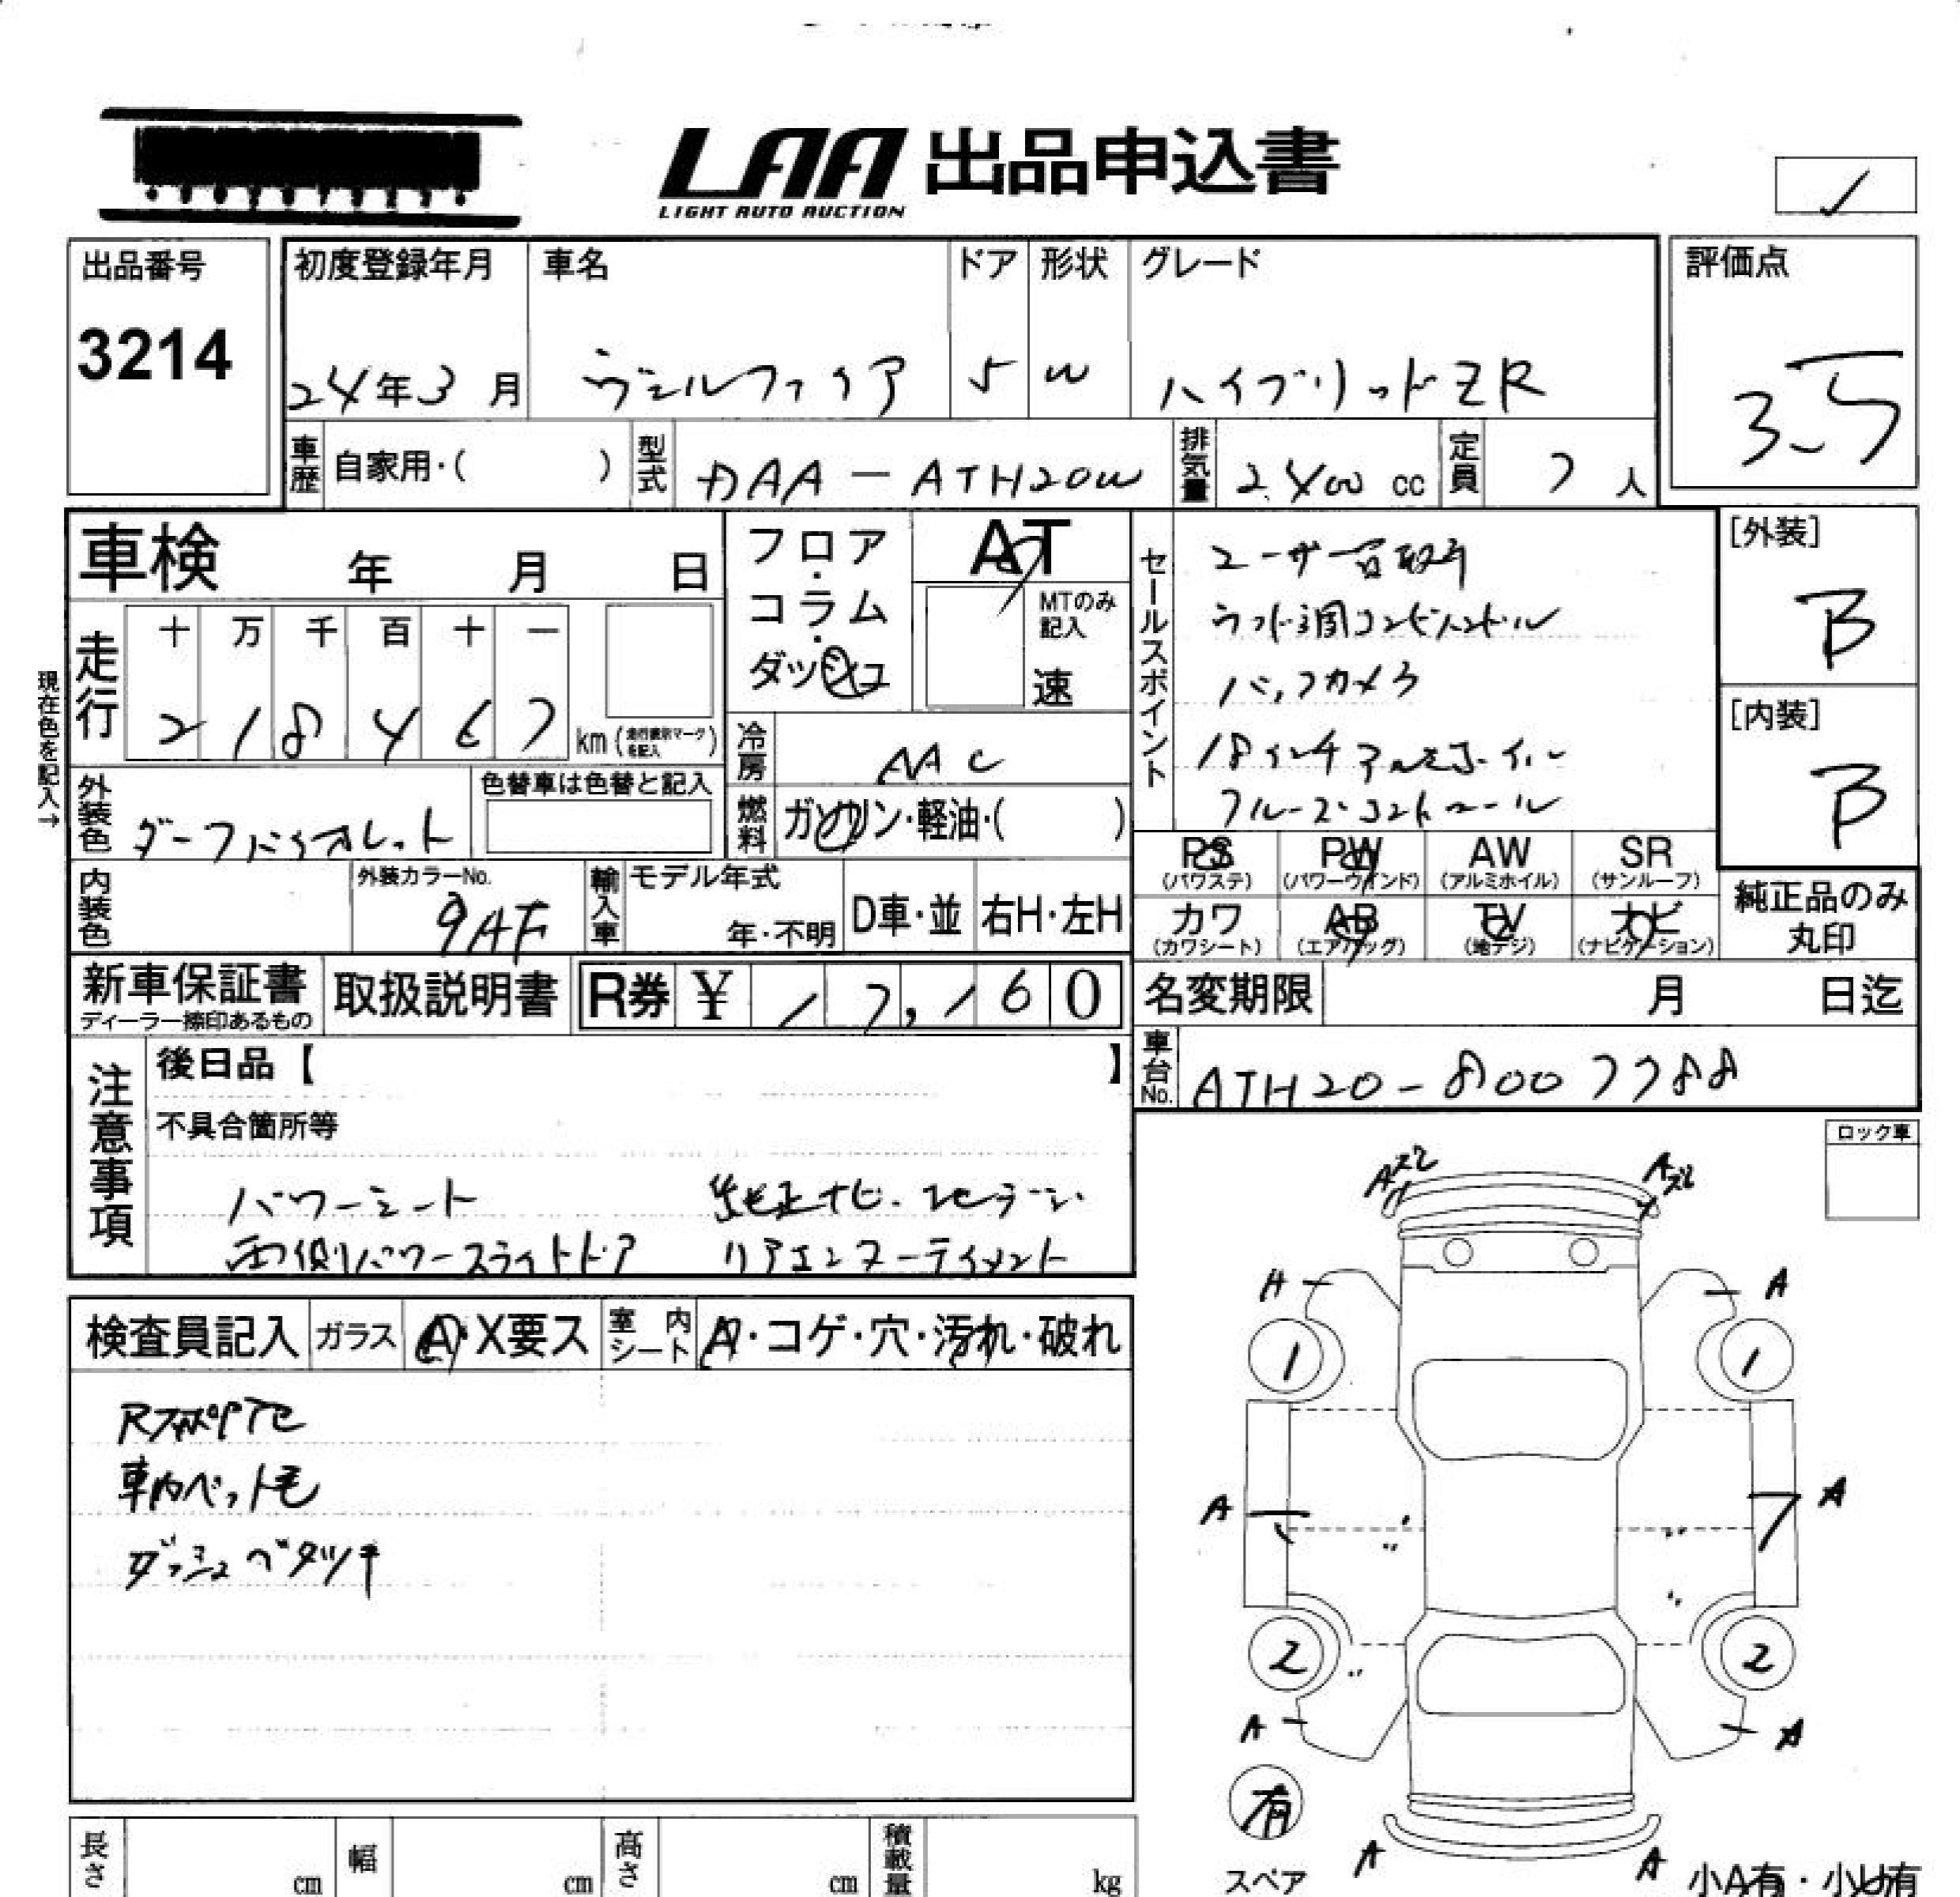 LAA 出品申込書
LIGHT AUTO AUCTION
出品番号
3214
初度登録年月
24年3月
車名
ヴェルファイア
ドア
5
形状
W
グレード
ハイブリッドZR
評価点
3.5
車歴 自家用・( )
型式 DAA-ATH20W
排気量 2400 cc
定員 7人
車検 年 月 日
フロア・コラム・ダッシュ
AT
MTのみ記入
速
現在色を記入→
走行
十 万 千 百 十 一
2 1 8 4 6 7 km (走行換別マークを記入)
冷房 AAC
外装色 ダークバイオレット
色替車は色替と記入
燃料 ガソリン・軽油・( )
内装色
外装カラーNo.
9AF
輸入車 モデル年式
年・不明
D車・並
右H・左H
セールスポイント
ユーザー買取車
ウッド調コンビハンドル
バックカメラ
18インチアルミホイール
クルーズコントロール
[外装]
B
[内装]
B
PS (パワステ)
PW (パワーウインド)
AW (アルミホイル)
SR (サンルーフ)
カワ (カワシート)
AB (エアバッグ)
TV (地デジ)
ナビ (ナビゲーション)
純正品のみ丸印
新車保証書
ディーラー捺印あるもの
取扱説明書
R券 ¥ 17,160
名変期限 月 日迄
車台No. ATH20-8007788
注意事項
後日品【 】
不具合箇所等
パワーシート 純正ナビ・地デジ
両側パワースライドドア リアエンターテイメント
ロック車
検査員記入
ガラス A・X要ス
室内シート A・コゲ・穴・汚れ・破れ
車内ペット毛
ダッシュベタツキ
A スレ
A スレ
A
A
1
1
A
A
2
2
A
A
有
スペア
A
A
小A有・小U有
長さ cm
幅 cm
高さ cm
積載量 kg